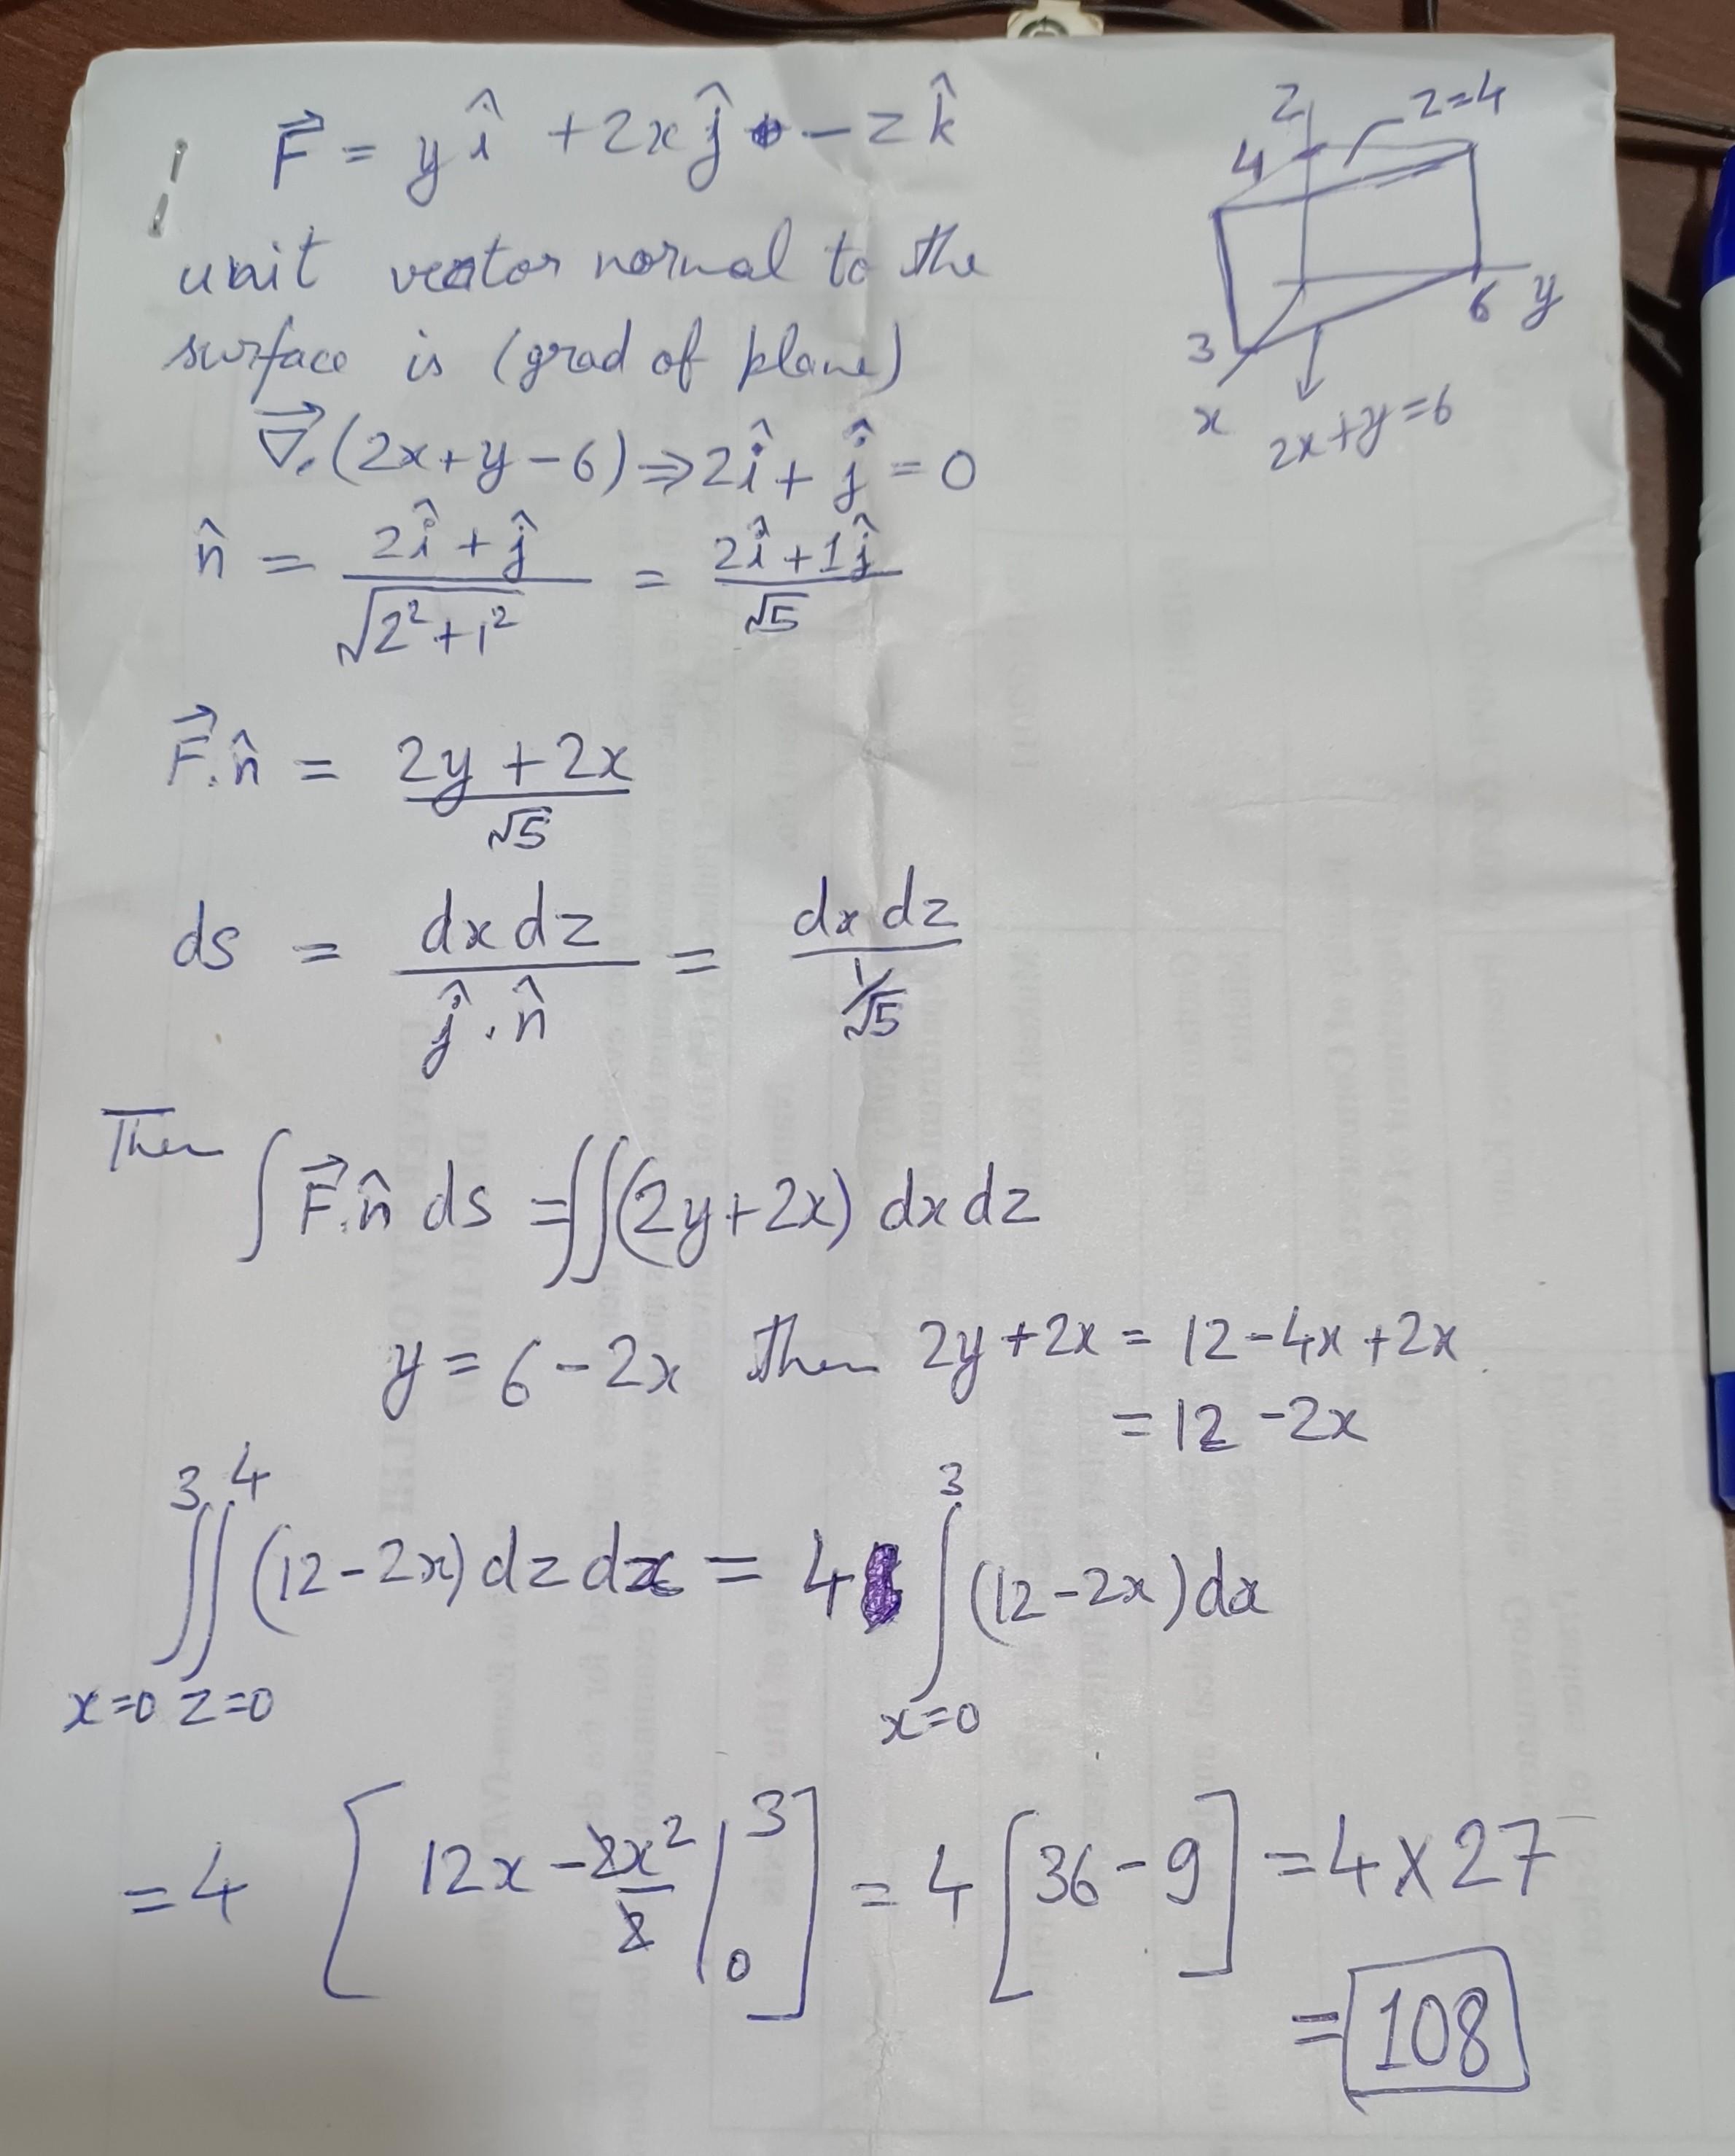 F⃗ = y î + 2x ĵ - z k̂
unit vector normal to the
surface is (grad of plane)
∇⃗.(2x+y-6) ⇒ 2î + ĵ = 0
n̂ = (2î + ĵ)/√(2²+1²) = (2î + 1ĵ)/√5
F⃗.n̂ = (2y + 2x)/√5
ds = dx dz/(ĵ . n̂) = dx dz/(1/√5)
Then
∫ F⃗.n̂ ds = ∬(2y+2x) dx dz
y = 6 - 2x then 2y + 2x = 12 - 4x + 2x
= 12 - 2x
3 4
∬ (12-2x) dz dx = 4 ∫ (12-2x) dx
x=0 z=0
3
x=0
= 4 [12x - 2x²/2 |₀³] = 4 [36 - 9] = 4 × 27
= 108
z
z=4
4
6 y
3
x
2x+y=6